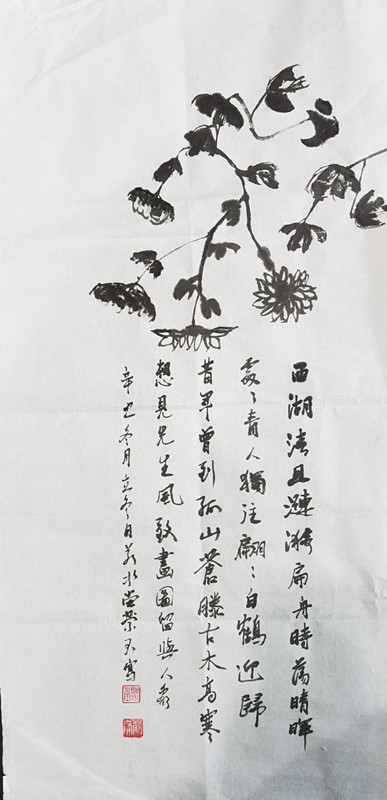 西湖清且漣漪扁舟時蕩晴暉
處〻青人獨往翩〻白鶴迎歸
昔年曾到孤山蒼藤古木高寒
想見先生風致畫圖留與人看
辛丑冬月立冬日於水堂榮君寫